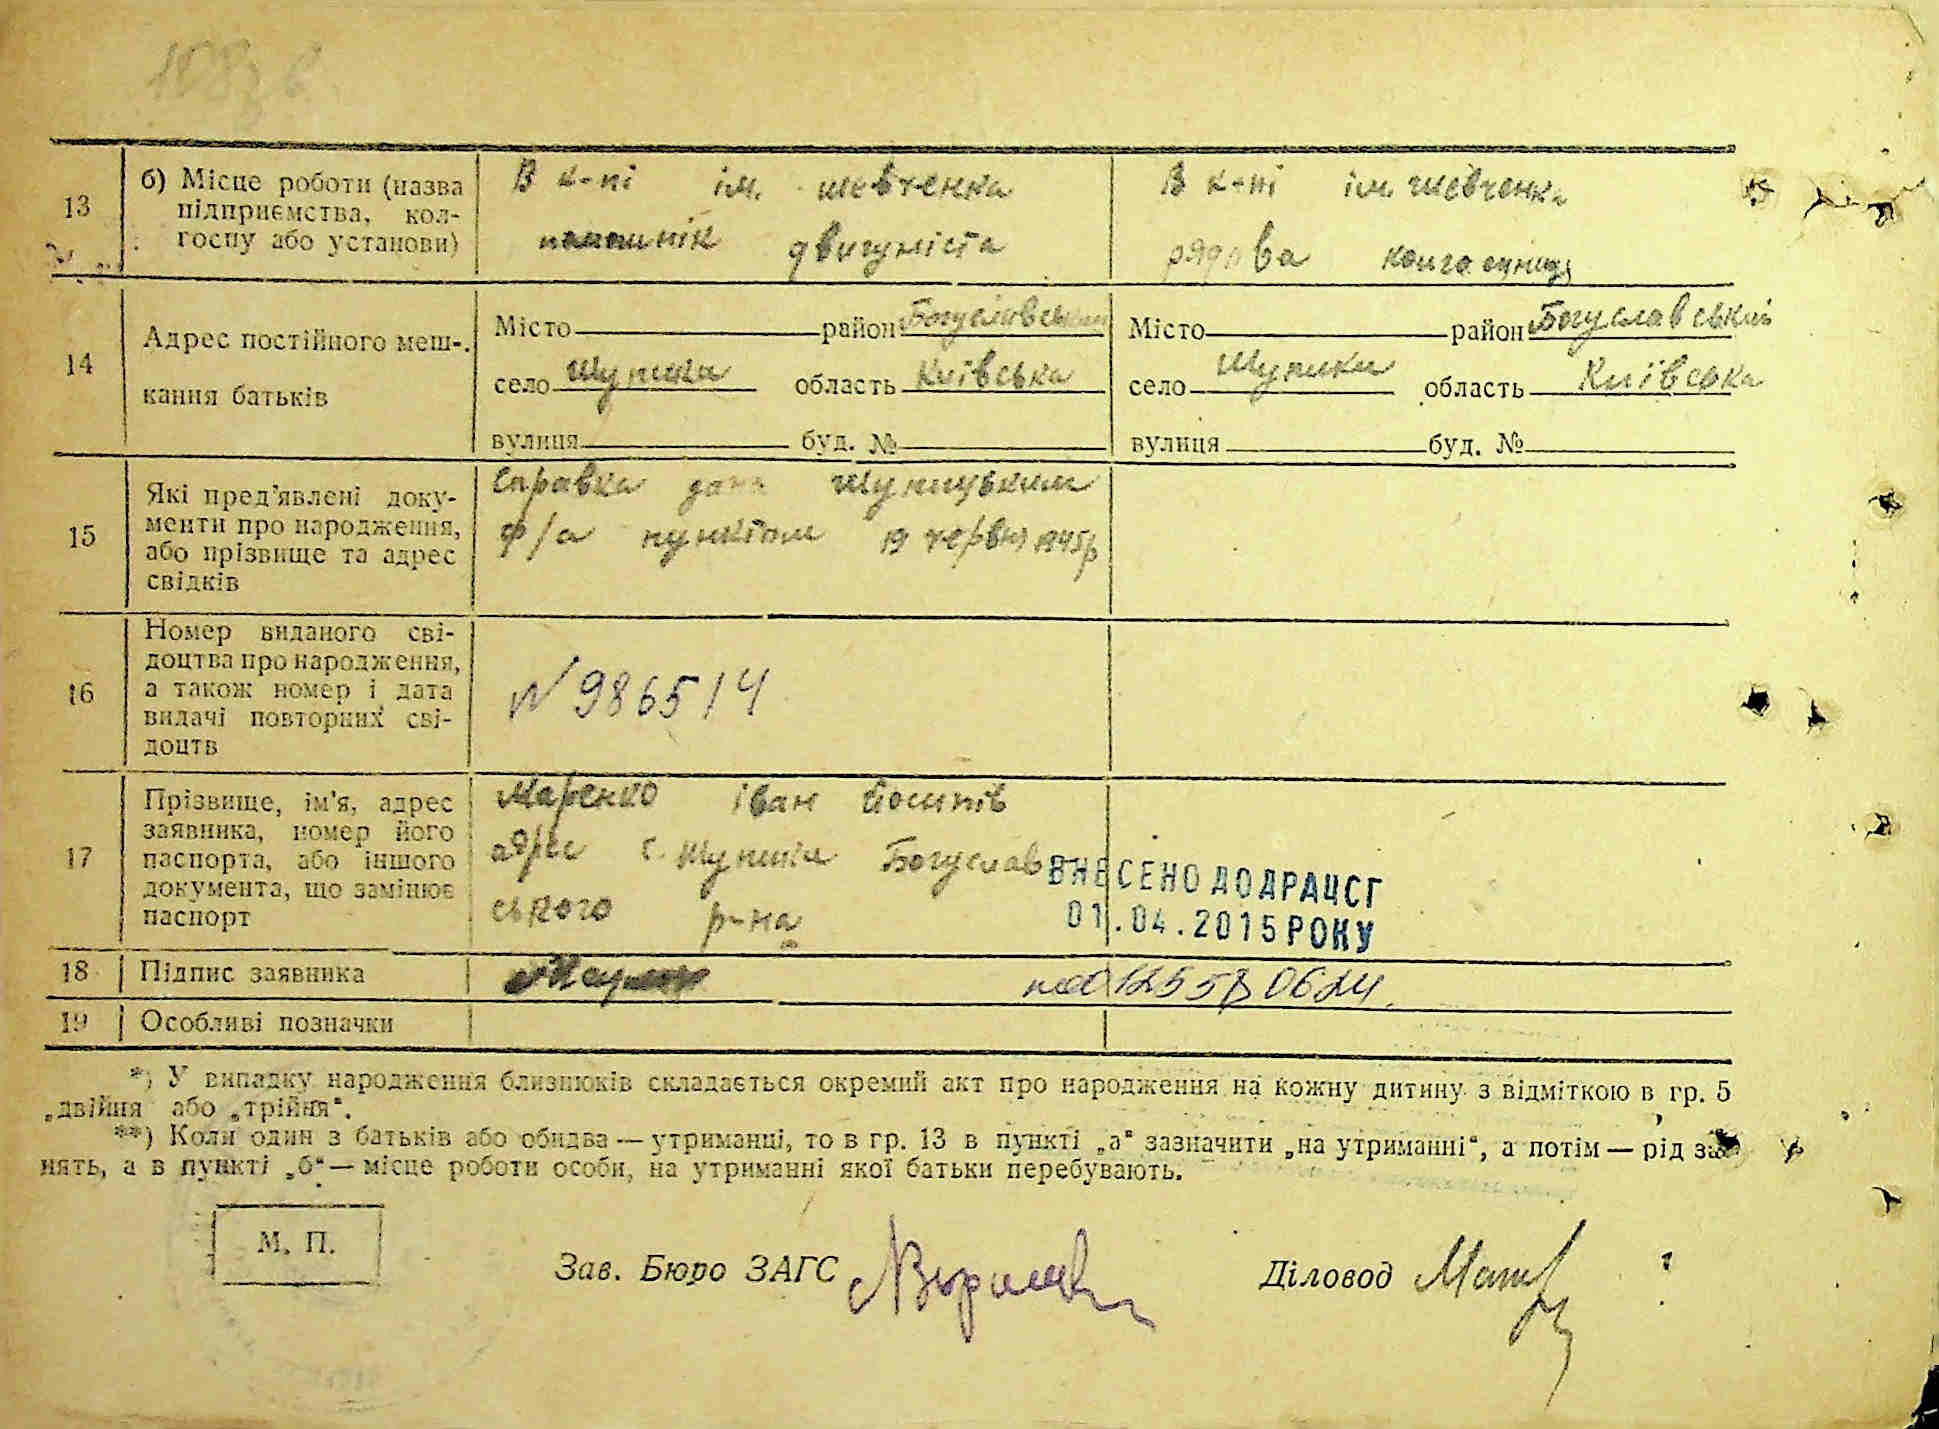 13
б) Місце роботи (назва
підприємства, кол-
госпу або установи)
В к-пі ім. шевченка
помошнік двигуніста
В к-пі ім. шевченка
рядова
14
Адрес постійного меш-
кання батьків
Місто район Богуславський
село Шупики область Київська
вулиця буд. №
Місто район Богуславський
село Шупики область Київська
вулиця буд. №
15
Які пред'явлені доку-
менти про народження,
або прізвище та адрес
свідків
Справка дана
ф/а пунктом 19 червня 1945р
16
Номер виданого сві-
доцтва про народження,
а також номер і дата
видачі повторних сві-
доцтв
N 986514
17
Прізвище, ім'я, адрес
заявника, номер його
паспорта, або іншого
документа, що замінює
паспорт
Маренко Іван Йосипів
адрес с. Шупики Богуслав
ського р-на
ВНЕСЕНО ДО ДРАЦСГ
01.04.2015 РОКУ
18
Підпис заявника
19
Особливі позначки
*) У випадку народження близнюків складається окремий акт про народження на кожну дитину з відміткою в гр. 5
„двійня або „трійня".
**) Коли один з батьків або обидва — утриманці, то в гр. 13 в пункті „а" зазначити „на утриманні", а потім — рід за-
нять, а в пункті „б" — місце роботи особи, на утриманні якої батьки перебувають.
М. П.
Зав. Бюро ЗАГС
Діловод